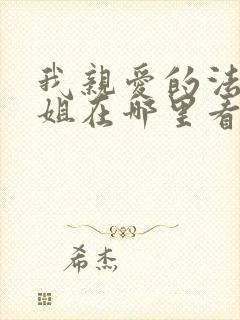 我親愛的法
姐在哪里看
希杰